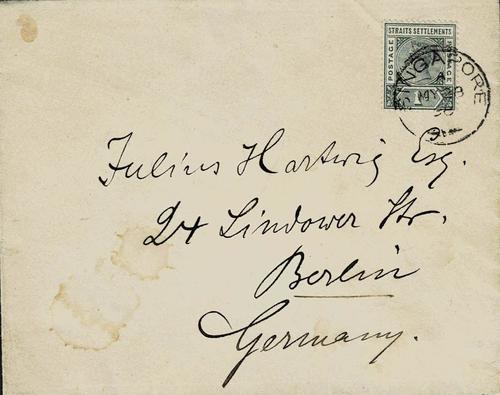 STRAITS SETTLEMENTS
POSTAGE
SINGAPORE
A
MY
Julius Hartwig Esq.
24 Lindower Str.
Berlin
Germany.